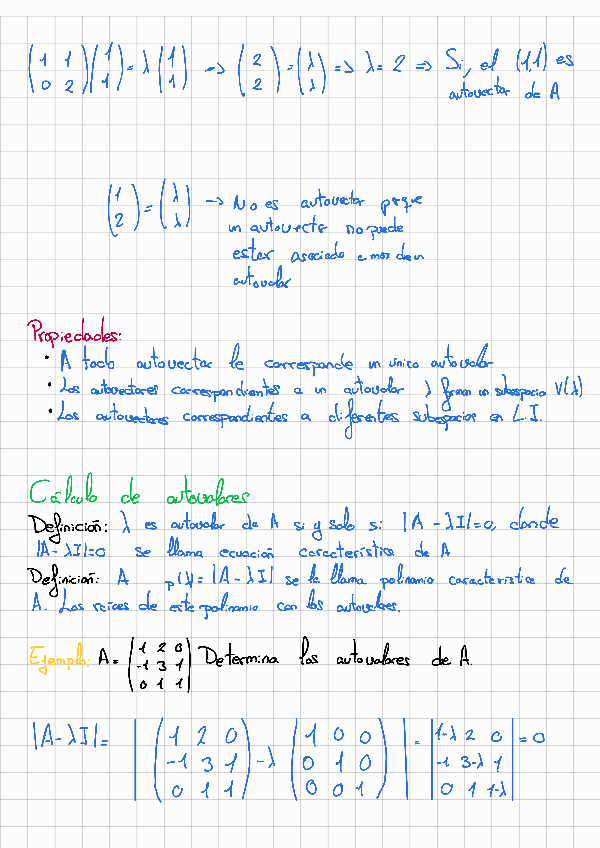 (1 1 / 0 2)(1 / 1) = λ (1 / 1) → (2 / 2) = (λ / λ) => λ = 2 => Si, el (1,1) es
autovector de A
(1 / 2) = (λ / λ) → No es autovector porque
un autovector no puede
estar asociado a mas de un
autovalor
Propiedades:
• A todo autovector le corresponde un único autovalor
• Los autovectores correspondientes a un autovalor λ forman un subespacio V(λ)
• Los autovectores correspondientes a diferentes subespacios en L.I.
Cálculo de autovalores
Definición: λ es autovalor de A si y solo si: |A - λI|=0, donde
|A-λI|=0 se llama ecuación característica de A
Definición: A p(λ)= |A-λI| se le llama polinomio característico de
A. Las raíces de este polinomio con los autovalores.
Ejemplo: A= (1 2 0 / -1 3 1 / 0 1 1) Determina los autovalores de A.
|A-λI|= | (1 2 0 / -1 3 1 / 0 1 1) -λ (1 0 0 / 0 1 0 / 0 0 1) | = |1-λ 2 0 / -1 3-λ 1 / 0 1 1-λ| = 0